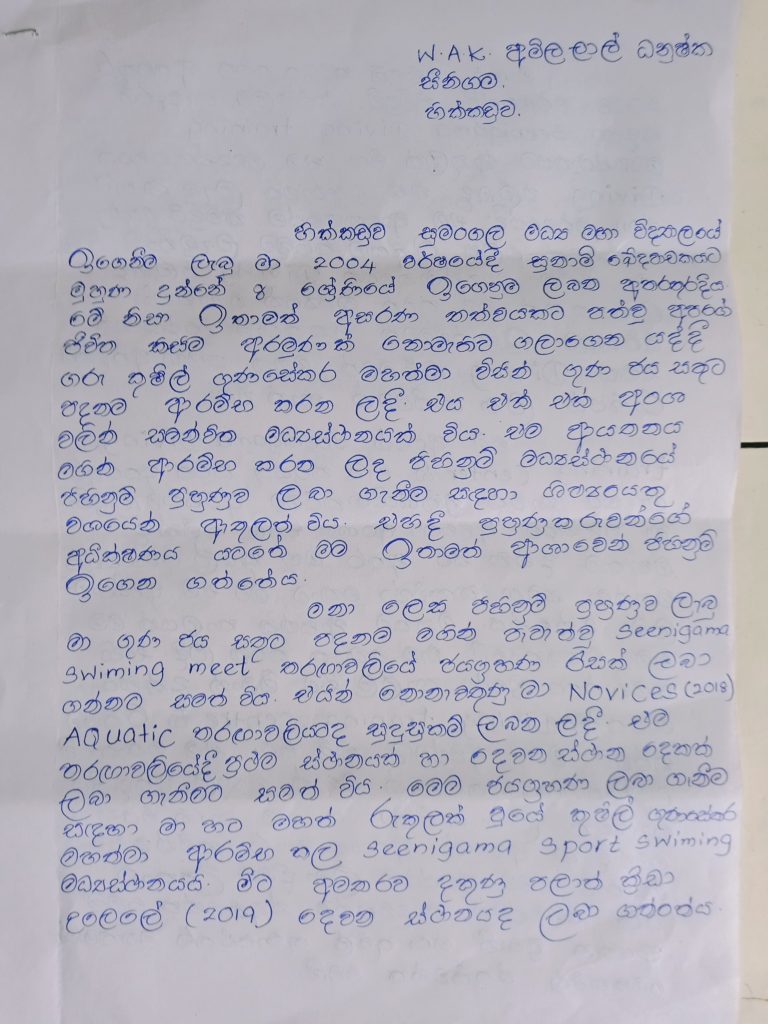 W.A.K. අමිල ලාල් ධනුෂ්ක
සීනිගම.
හික්කඩුව.
හික්කඩුව සුමංගල මධ්‍ය මහා විද්‍යාලයේ
ඉගෙනීම ලැබූ මා 2004 වර්ෂයේදී සුනාමි ඛේදවාචකයට
මුහුණ දුන්නේ 8 ශ්‍රේණියේ ඉගෙනුම ලබන අතරතුරදීය
මේ නිසා ඉතාමත් අසරණ තත්වයකට පත්වූ අපගේ
ජීවිත කිසිම අරමුණක් නොමැතිව ගලාගෙන යද්දී
ගරු කුෂිල් ගුණසේකර මහත්මා විසින් ගුණ ජය සතුට
පදනම ආරම්භ කරන ලදී. එය එක් එක් අංශ
වලින් සමන්විත මධ්‍යස්ථානයක් විය. එම ආයතනය
මගින් ආරම්භ කරන ලද පිහිනුම් මධ්‍යස්ථානයේ
පිහිනුම් පුහුණුව ලබා ගැනීම සඳහා ශිෂ්‍යයෙකු
වශයෙන් ඇතුලත් විය. එහිදී පුහුණුකරුවන්ගේ
අධීක්ෂණය යටතේ මම ඉතාමත් ආශාවෙන් පිහිනුම්
ඉගෙන ගත්තේය.
මනා ලෙස පිහිනුම් පුහුණුව ලැබූ
මා ගුණ ජය සතුට පදනම මගින් පැවැත්වූ Seenigama
Swiming meet තරඟාවලියේ ජයග්‍රහණ රැසක් ලබා
ගන්නට සමත් විය. එයින් නොනැවතුණු මා Novices (2018)
AQuatic තරඟාවලියටද සුදුසුකම් ලබන ලදී. එම
තරඟාවලියේදී ප්‍රථම ස්ථානයක් හා දෙවන ස්ථාන දෙකක්
ලබා ගැනීමට සමත් විය. මෙම ජයග්‍රහණ ලබා ගැනීම
සඳහා මා හට මහත් රුකුලක් වූයේ කුෂිල් ගුණසේකර
මහත්මා ආරම්භ කල Seenigama Sport Swiming
මධ්‍යස්ථානයයි. මීට අමතරව දකුණු පලාත් ක්‍රීඩා
උලෙලේ (2019) දෙවන ස්ථානයද ලබා ගත්තේය.